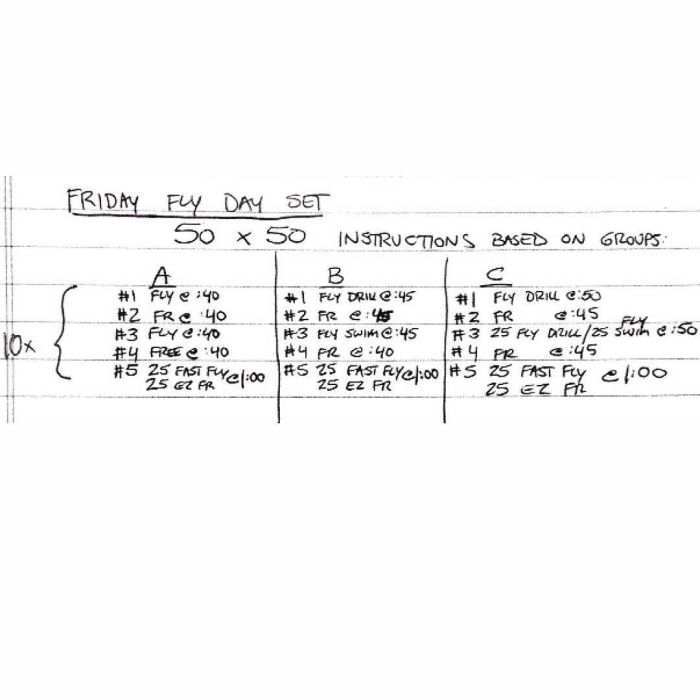 FRIDAY FLY DAY SET
50 x 50 INSTRUCTIONS BASED ON GROUPS:
10x
A
#1 FLY @ :40
#2 FR @ :40
#3 FLY @ :40
#4 FREE @ :40
#5 25 FAST FLY @ 1:00
25 EZ FR
B
#1 FLY DRILL @ :45
#2 FR @ :
#3 FLY SWIM @ :45
#4 FR @ :40
#5 25 FAST FLY @ 1:00
25 EZ FR
C
#1 FLY DRILL @ :50
#2 FR @ :45
#3 25 FLY DRILL/25 FLY SWIM @ :50
#4 FR @ :45
#5 25 FAST FLY @ 1:00
25 EZ FR